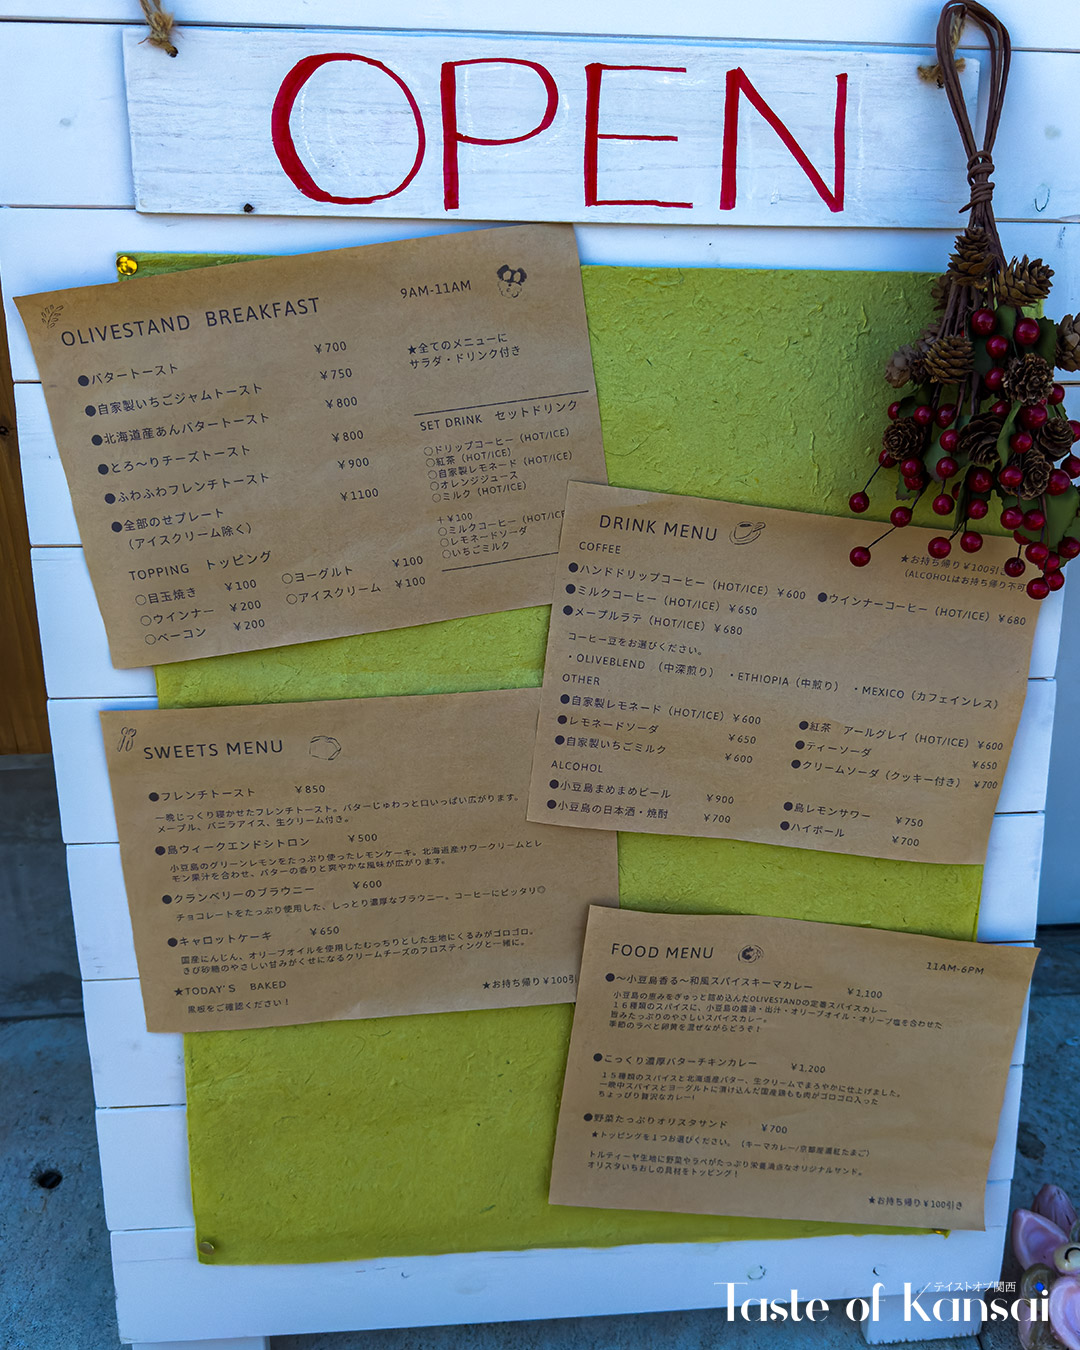 OPEN
OLIVESTAND BREAKFAST 9AM-11AM
●バタートースト ¥700
●自家製いちごジャムトースト ¥750
●北海道産あんバタートースト ¥800
●とろ〜りチーズトースト ¥800
●ふわふわフレンチトースト ¥900
●全部のせプレート ¥1100
(アイスクリーム除く)
TOPPING トッピング
○目玉焼き ¥100
○ウインナー ¥200
○ベーコン ¥200
○ヨーグルト ¥100
○アイスクリーム ¥100
★全てのメニューに
サラダ・ドリンク付き
SET DRINK セットドリンク
○ドリップコーヒー (HOT/ICE)
○紅茶 (HOT/ICE)
○自家製レモネード (HOT/ICE)
○オレンジジュース
○ミルク (HOT/ICE)
+¥100
○ミルクコーヒー (HOT/ICE
○レモネードソーダ
○いちごミルク
DRINK MENU
★お持ち帰り¥100引き
(ALCOHOLはお持ち帰り不可
COFFEE
●ハンドドリップコーヒー (HOT/ICE) ¥600 ●ウインナーコーヒー (HOT/ICE) ¥680
●ミルクコーヒー (HOT/ICE) ¥650
●メープルラテ (HOT/ICE) ¥680
コーヒー豆をお選びください。
・OLIVEBLEND (中深煎り) ・ETHIOPIA (中煎り) ・MEXICO (カフェインレス)
OTHER
●自家製レモネード (HOT/ICE) ¥600 ●紅茶 アールグレイ (HOT/ICE) ¥600
●レモネードソーダ ¥650 ●ティーソーダ ¥650
●自家製いちごミルク ¥600 ●クリームソーダ (クッキー付き) ¥700
ALCOHOL
●小豆島まめまめビール ¥900 ●島レモンサワー ¥750
●小豆島の日本酒・焼酎 ¥700 ●ハイボール ¥700
SWEETS MENU
●フレンチトースト ¥850
一晩じっくり寝かせたフレンチトースト。バターじゅわっと口いっぱい広がります。
メープル、バニラアイス、生クリーム付き。
●島ウィークエンドシトロン ¥500
小豆島のグリーンレモンをたっぷり使ったレモンケーキ。北海道産サワークリームとレ
モン果汁を合わせ、バターの香りと爽やかな風味が広がります。
●クランベリーのブラウニー ¥600
チョコレートをたっぷり使用した、しっとり濃厚なブラウニー。コーヒーにピッタリ◎
●キャロットケーキ ¥650
国産にんじん、オリーブオイルを使用したむっちりとした生地にくるみがゴロゴロ。
きび砂糖のやさしい甘みがくせになるクリームチーズのフロスティングと一緒に。
★TODAY'S BAKED
黒板をご確認ください!
★お持ち帰り¥100引
FOOD MENU 11AM-6PM
●〜小豆島香る〜和風スパイスキーマカレー ¥1,100
小豆島の恵みをぎゅっと詰め込んだOLIVESTANDの定番スパイスカレー
16種類のスパイスに、小豆島の醤油・出汁・オリーブオイル・オリーブ塩を合わせた
旨みたっぷりのやさしいスパイスカレー。
季節のラペと卵黄を混ぜながらどうぞ!
●こっくり濃厚バターチキンカレー ¥1,200
15種類のスパイスと北海道産バター、生クリームでまろやかに仕上げました。
一晩中スパイスとヨーグルトに漬け込んだ国産鶏もも肉がゴロゴロ入った
ちょっぴり贅沢なカレー!
●野菜たっぷりオリスタサンド ¥700
★トッピングを1つお選びください。 (キーマカレー/京都産燻紅たまご)
トルティーヤ生地に野菜やラペがたっぷり栄養満点なオリジナルサンド。
オリスタいちおしの具材をトッピング!
★お持ち帰り¥100引き
テイストオブ関西
Taste of Kansai